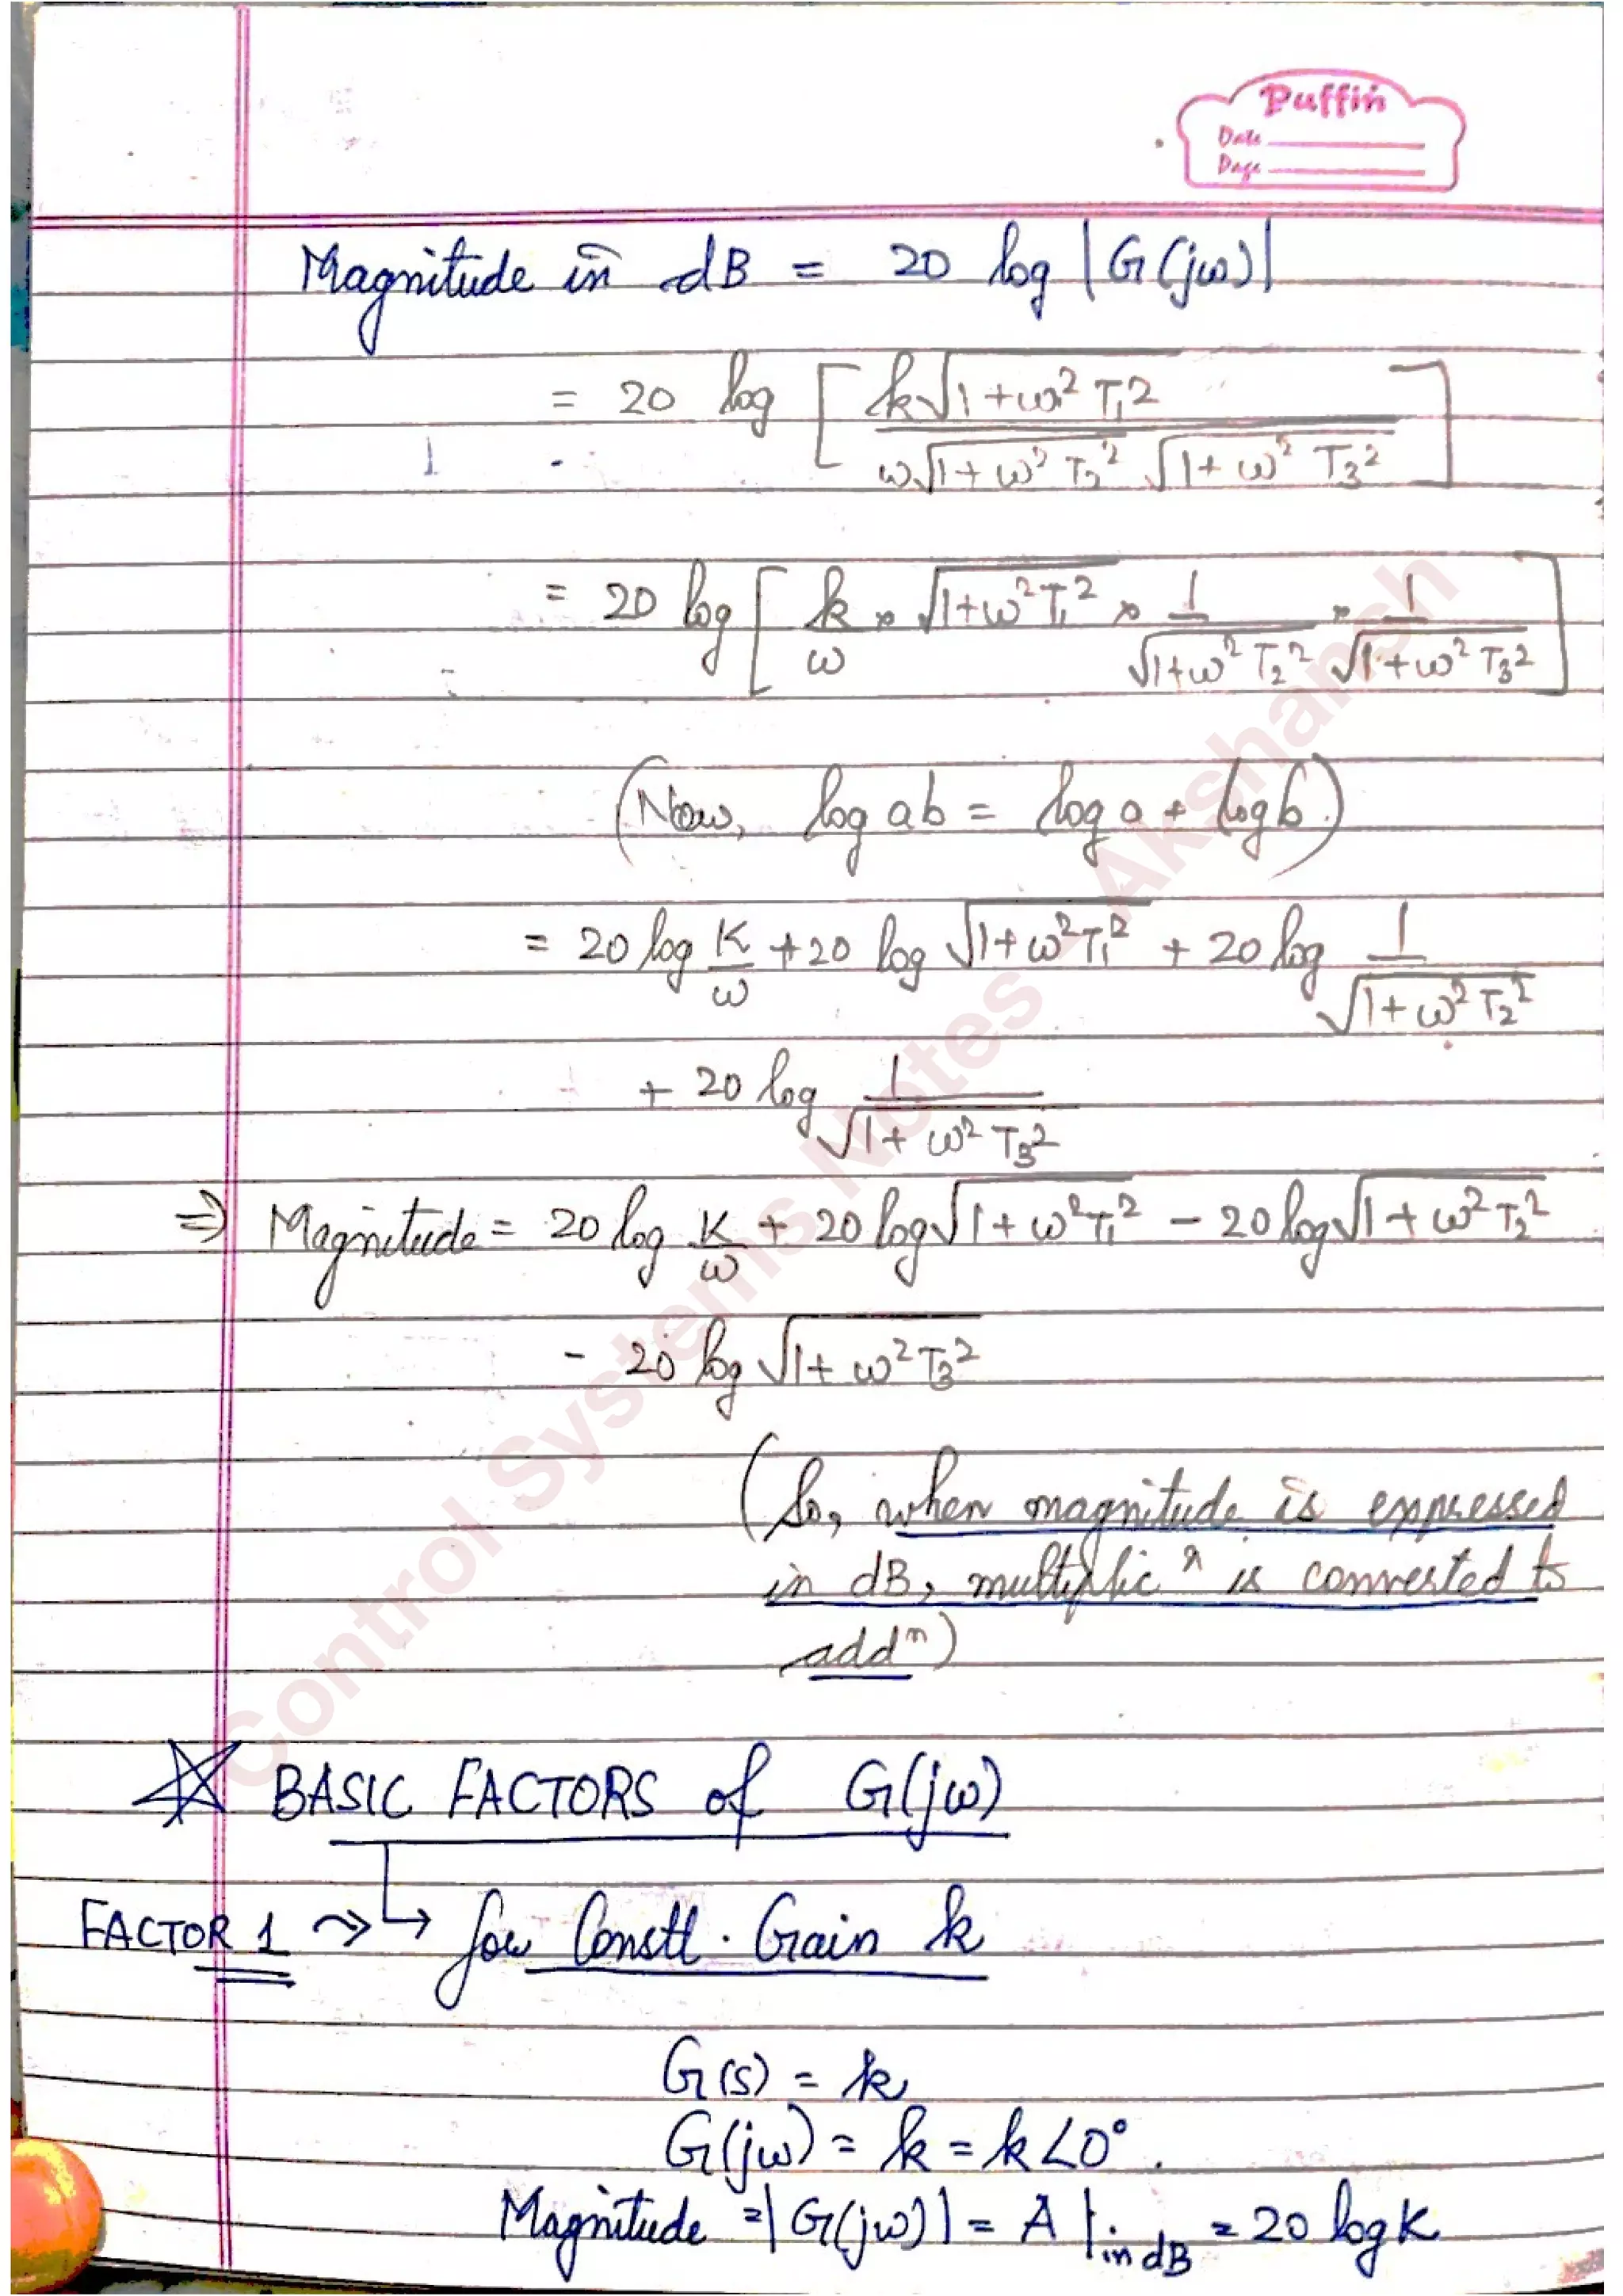 Puffin
Date
Page
Magnitude in dB = 20 log |G(jω)|
= 20 log [ k√(1+ω² T₁²) / ω√(1+ω² T₂²) √(1+ω² T₃²) ]
= 20 log [ k/ω × √(1+ω²T₁²) × 1/√(1+ω² T₂²) × 1/√(1+ω² T₃²) ]
(Now, log ab = log a + log b)
= 20 log K/ω + 20 log √(1+ω²T₁²) + 20 log 1/√(1+ω² T₂²)
+ 20 log 1/√(1+ω² T₃²)
⇒ Magnitude = 20 log K/ω + 20 log√(1+ω²T₁²) - 20 log√(1+ω²T₂²)
- 20 log √(1+ω²T₃²)
(So, when magnitude is expressed
in dB, multiplicⁿ is converted to
addⁿ)
☆ BASIC FACTORS of G(jω)
FACTOR 1 ⇝ ↳ for Constt. Gain k
G(s) = k
G(jω) = k = k∠0°.
Magnitude = |G(jω)| = A |in dB = 20 log K
Control Systems Notes Akshansh